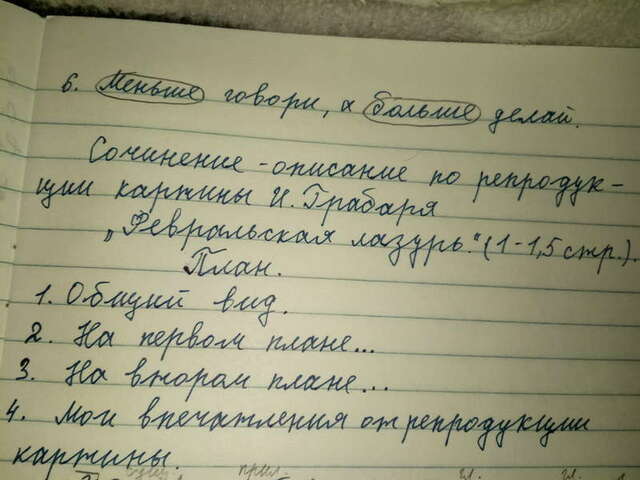 6. Меньше говори, а больше делай.
Сочинение-описание по репродук-
ции картины И. Грабаря
„Февральская лазурь." (1-1,5 стр.).
План.
1. Общий вид.
2. На первом плане...
3. На втором плане...
4. Мои впечатления от репродукции
картины.
прил.
гл. гл.